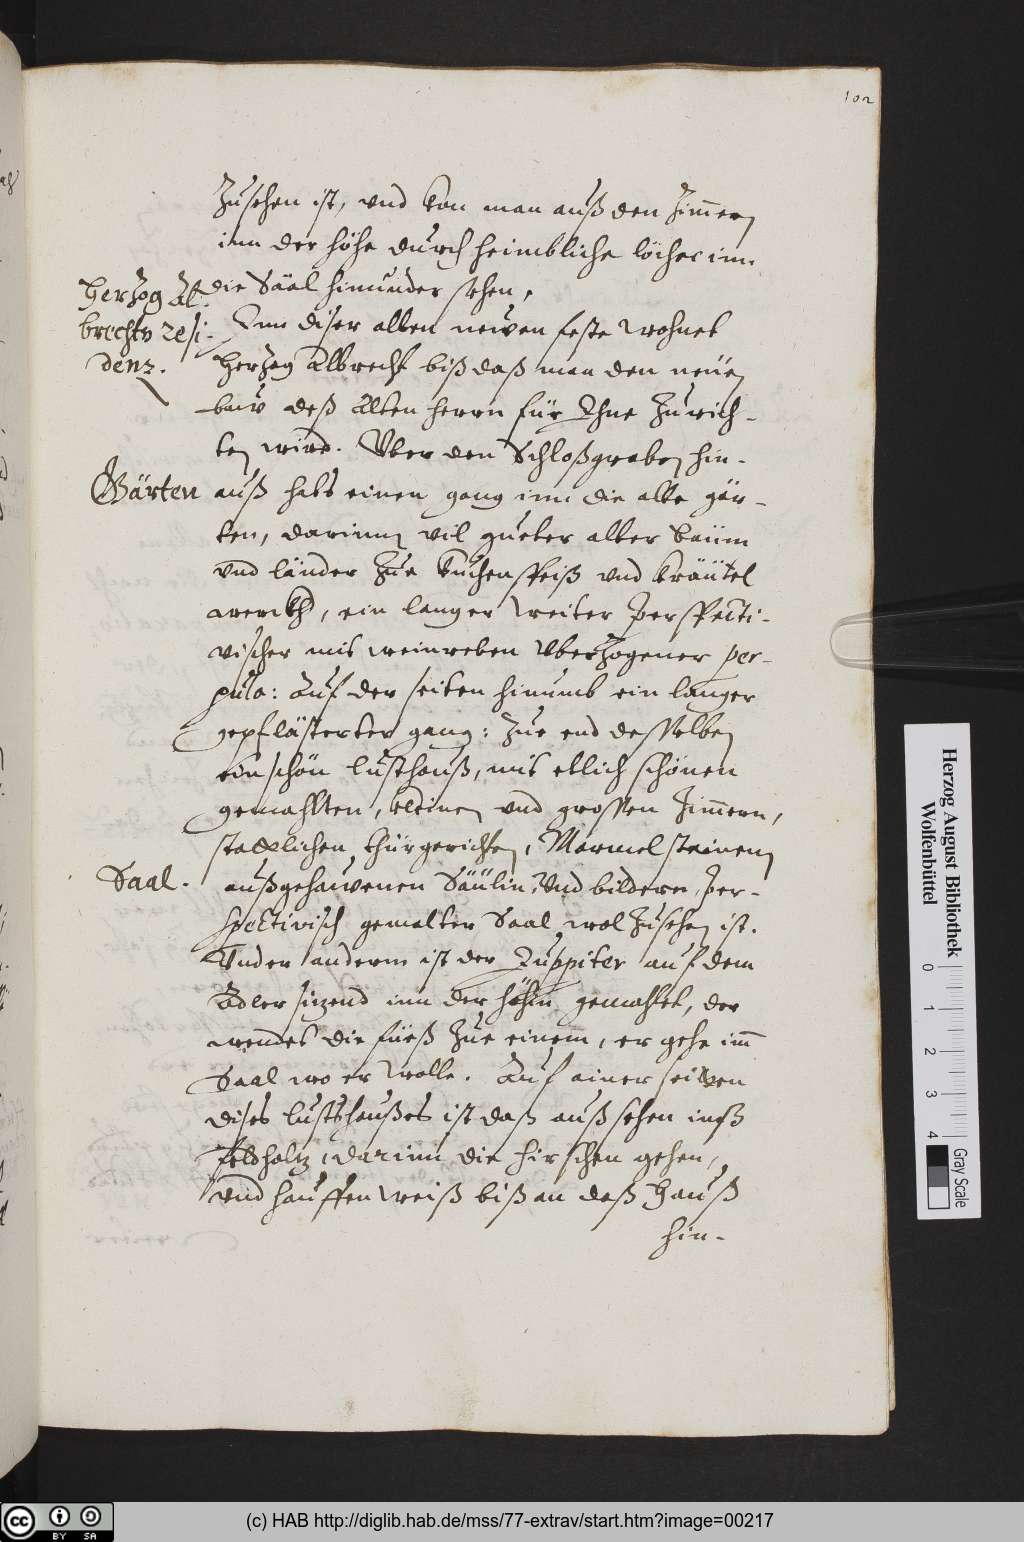 102
Zusehen ist, vnd kan man auß den Zimmern
inn der höhe durch heimbliche löcher inn
die Sääl hinunder sehen.
Herzog Al-
brechts resi-
denz.
Inn diser alten newen feste wohnet
Herzog Albrecht biß daß man den neüen
baw deß Alten herrn für Ihne Zurich-
ten wird. Vber den Schloßgraben hin-
Gärten
auß hats einen gang inn die alte gär-
ten, darinnen vil gueter alter bäüm
vnd länder Zue kuchenspeiß vnd kräütel
werckh, ein langer weiter perspecti-
vischer mit weinreben vberzogener per-
pula: Auf der seiten hinumb ein langer
gepflästerter gang: Zue end desselben
ein schön lusthauß, mit etlich schönen
gemahlten, kleinen vnd grossen Zimmern,
stattlichen thürgerichten, Marmelsteinen
Saal.
außgehawenen Säülin, Vnd bildern, per-
spectivisch gemalter Saal wol Zusehen ist.
Vnder anderm ist der Juppiter auf dem
Adler sizend inn der höhin gemahlet, der
wendet die füeß Zue einem, er gehe im
Saal wo er wolle. Auf ainer seitten
dises lusthaußes ist daß außsehen inß
feldholtz, darinn die hirschen gehen,
vnd hauffenweiß biß an daß Hauß
hin-
Herzog August Bibliothek
Wolfenbüttel
0 1 2 3 4
Gray Scale
cc BY SA
(c) HAB http://diglib.hab.de/mss/77-extrav/start.htm?image=00217